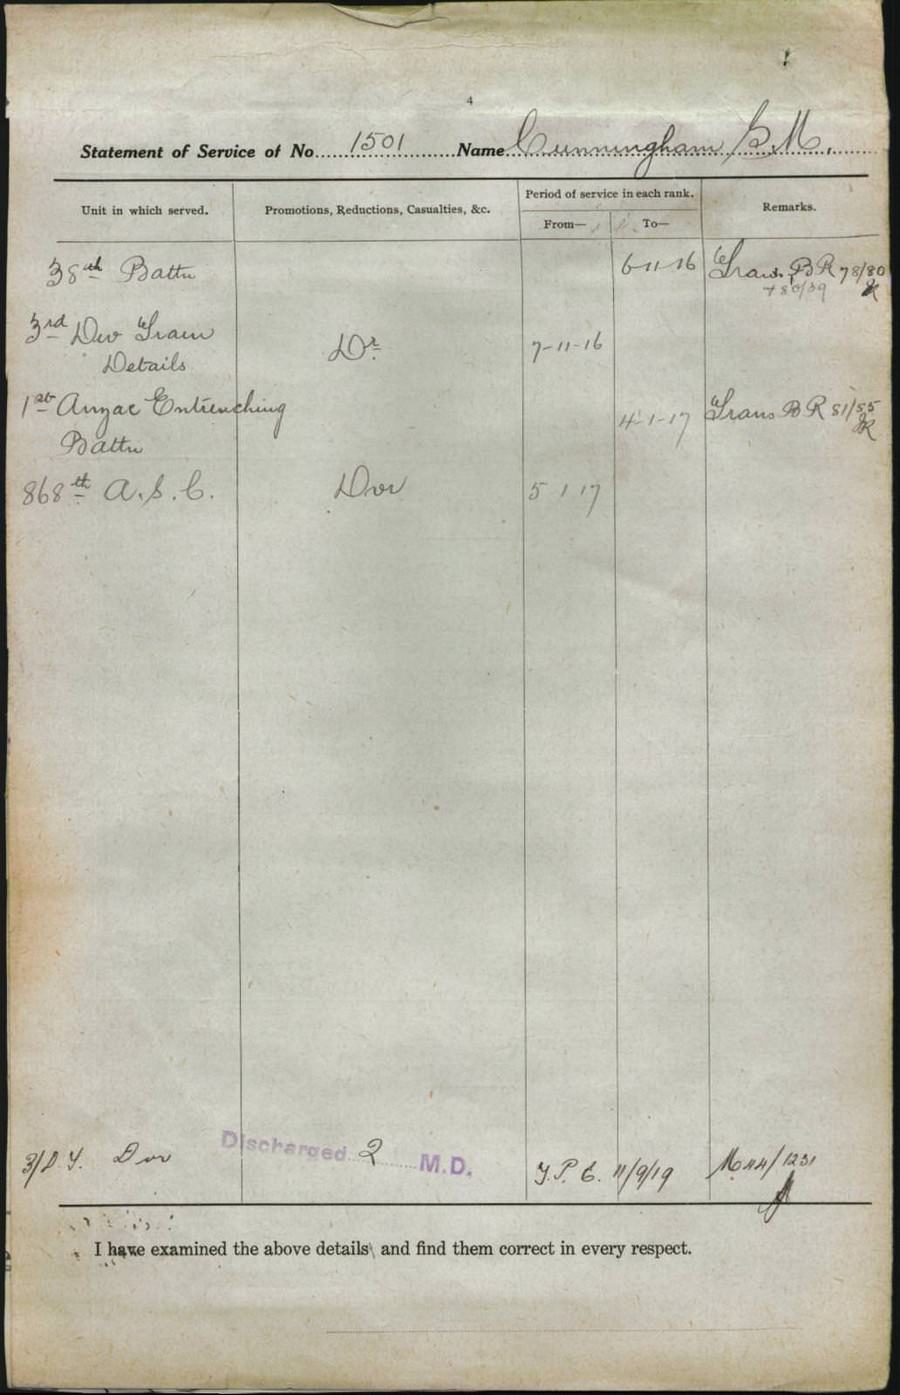 4
Statement of Service of No. 1501 Name Cunningham G M.
Unit in which served. Promotions, Reductions, Casualties, &c. Period of service in each rank. Remarks.
From— To—
38th Battn 6-11-16 Trans. BR 78/80
+ 80/39
3rd Div Train Dr. 7-11-16
Details
1st Anzac Entrenching 4-1-17 Trans BR 81/55
Battn
868th A.S.C. Dvr 5 1 17
Dvr Discharged 2 M.D. T.P.E. 11/9/19 1231
I have examined the above details and find them correct in every respect.